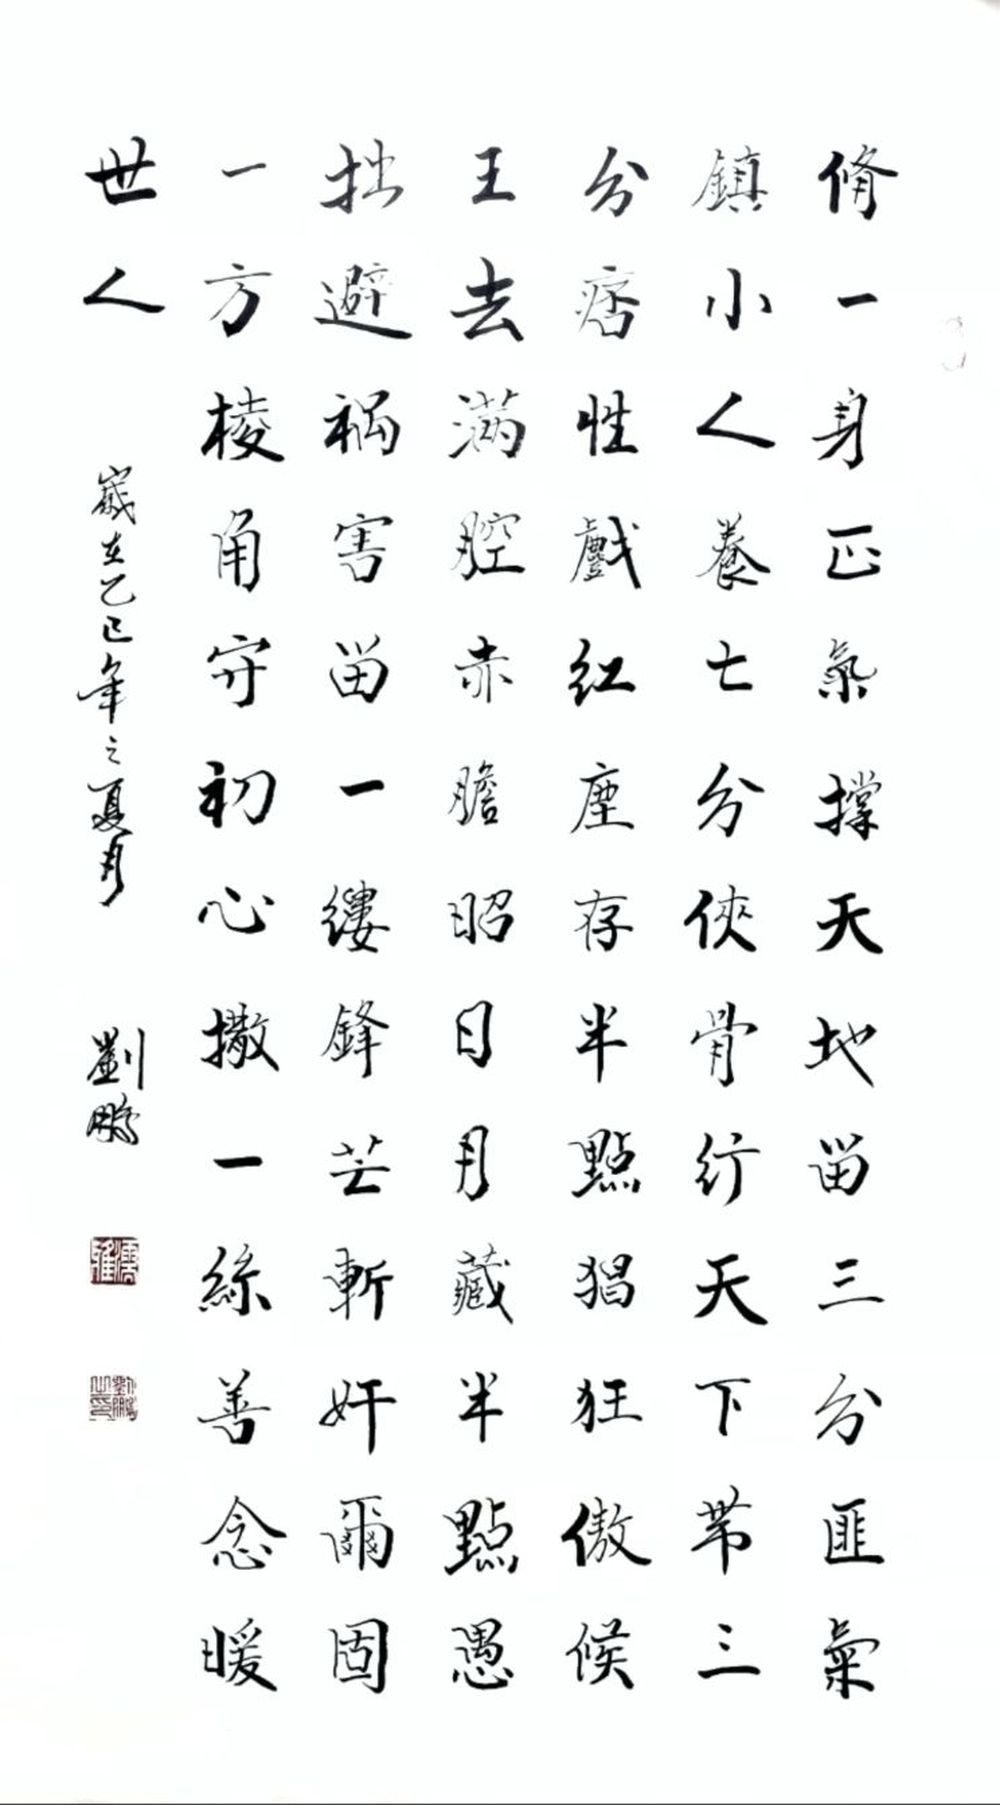 脩一身正氣撐天地畱三分匪氣
鎮小人養七分俠骨行天下帶三
分痞性戲紅塵存半點猖狂傲候
王去滿腔赤膽昭日月藏半點愚
拙避禍害畱一縷鋒芒斬奸爾固
一方棱角守初心撒一絲善念暖
世人
嵗在乙巳年之夏月
劉鵬